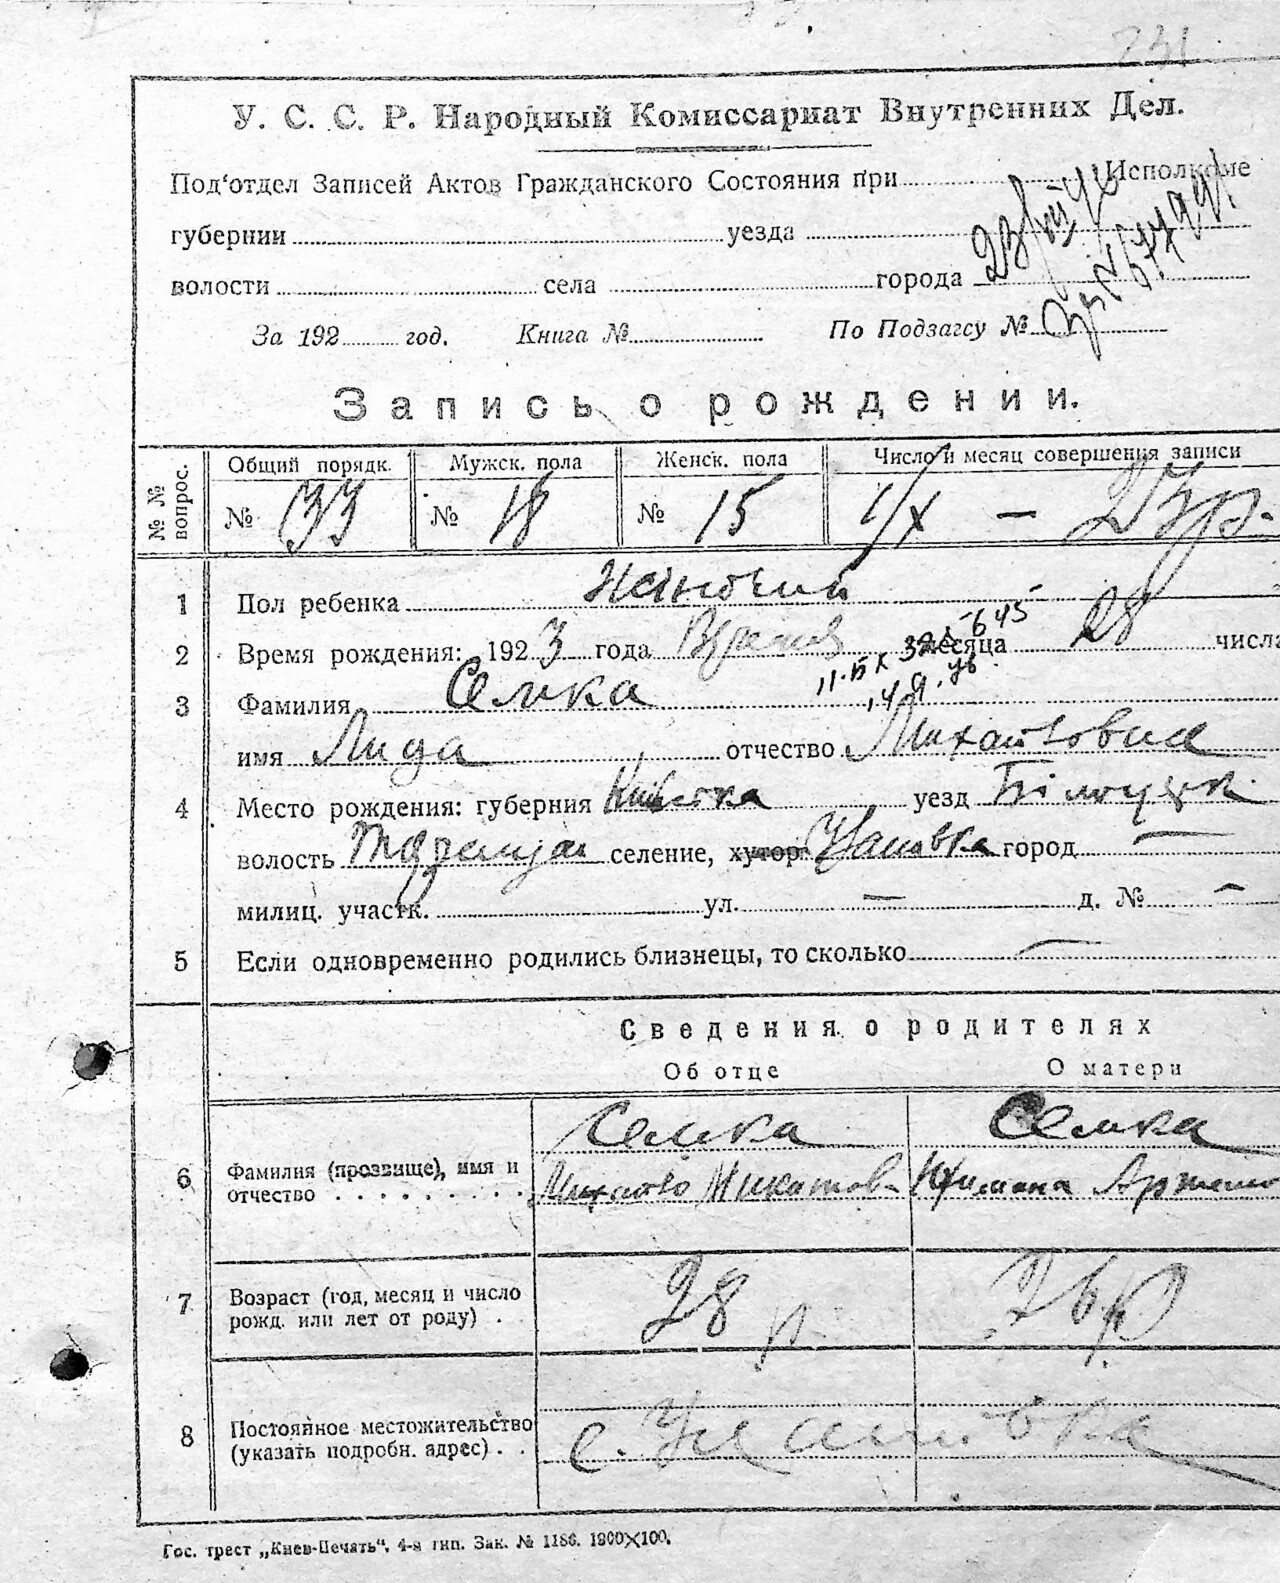 231
У. С. С. Р. Народный Комиссариат Внутренних Дел.
Под'отдел Записей Актов Гражданского Состояния при Исполкоме
губернии уезда
волости села города
За 192 год. Книга № По Подзагсу №
Запись о рождении.
№ № вопрос. Общий порядк. Мужск. пола Женск. пола Число и месяц совершения записи
№ 33 № 18 № 15 1/X — 23 р.
1 Пол ребенка Жіночий
2 Время рождения: 1923 года месяца 28 числа
3 Фамилия Семка
имя Лида отчество Михайловна
4 Место рождения: губерния Київська уезд Білоцерк.
волость селение, хутор город —
милиц. участк. ул. — д. № —
5 Если одновременно родились близнецы, то сколько —
Сведения о родителях
Об отце О матери
Семка Семка
6 Фамилия (прозвище), имя и
отчество
7 Возраст (год, месяц и число
рожд. или лет от роду) . 28 р. 26 р.
8 Постоянное местожительство
(указать подробн. адрес) . . с.
Гос. трест „Киев-Печать“, 4-я тип. Зак. № 1186. 1900×100.